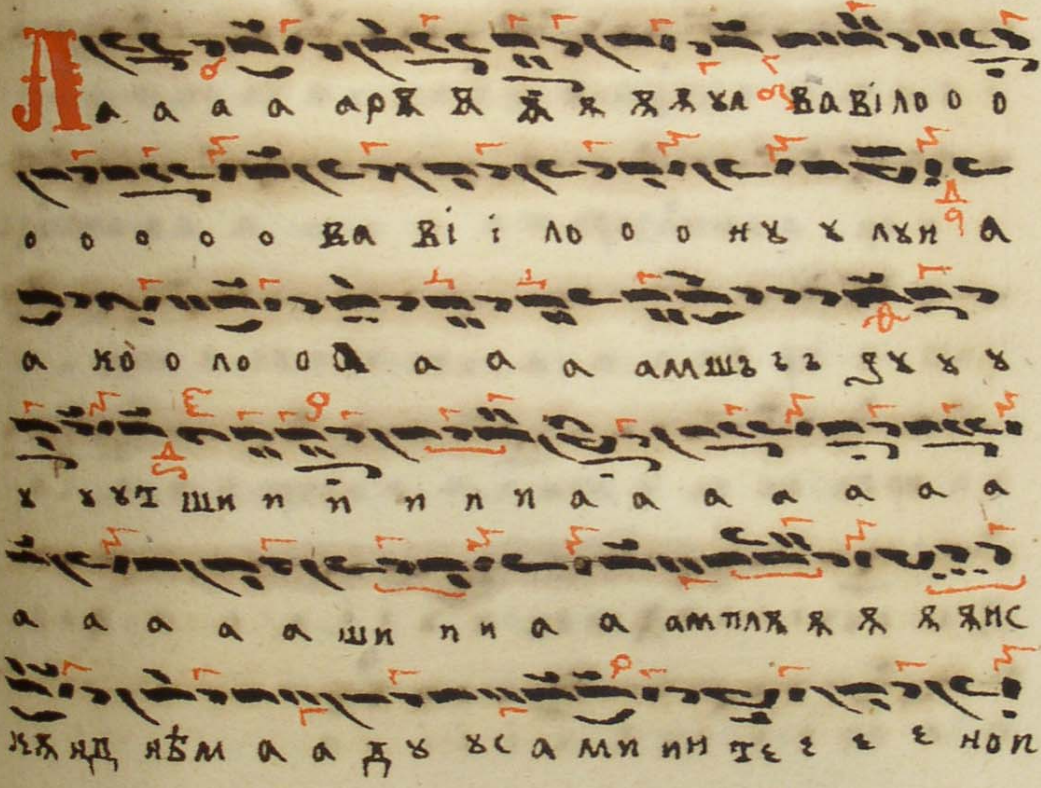 Л а а а а арѫ ѫ ѫ ѫ ѫ ѫ ꙋл ва ві ло о о
о о о о о ва ві і ло о о н ꙋ ꙋ лꙋи а
а ко о ло о а а а а амшъ ъ ъ зꙋ ꙋ ꙋ
ꙋ ꙋ ꙋт ши и и и и и а а а а а а а
а а а а а ши и и а а ам плѫ ѫ ѫ ѫ ѫнс
кѫ нд нѣм а а д ꙋ ꙋс а ми ин те е е е е нои